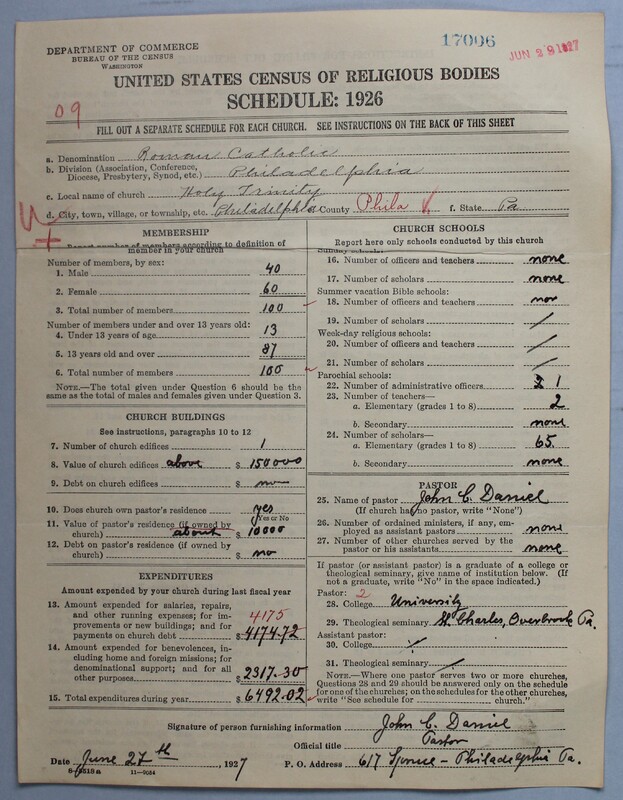 DEPARTMENT OF COMMERCE
BUREAU OF THE CENSUS
WASHINGTON
17006
JUN 29 1927
UNITED STATES CENSUS OF RELIGIOUS BODIES
SCHEDULE: 1926
09
FILL OUT A SEPARATE SCHEDULE FOR EACH CHURCH. SEE INSTRUCTIONS ON THE BACK OF THIS SHEET
a. Denomination Roman Catholic
b. Division (Association, Conference,
Diocese, Presbytery, Synod, etc.) Philadelphia
c. Local name of church Holy Trinity
d. City, town, village, or township, etc. Philadelphia County Phila f. State Pa
MEMBERSHIP
Report number of members according to definition of
member in your church
Number of members, by sex:
1. Male 40
2. Female 60
3. Total number of members 100
Number of members under and over 13 years old:
4. Under 13 years of age 13
5. 13 years old and over 87
6. Total number of members 100
NOTE.—The total given under Question 6 should be the
same as the total of males and females given under Question 3.
CHURCH BUILDINGS
See instructions, paragraphs 10 to 12
7. Number of church edifices 1
8. Value of church edifices above $ 150000
9. Debt on church edifices $
10. Does church own pastor's residence yes
Yes or No
11. Value of pastor's residence (if owned by
church) about $ 10000
12. Debt on pastor's residence (if owned by
church) $ no
EXPENDITURES
Amount expended by your church during last fiscal year
13. Amount expended for salaries, repairs,
and other running expenses; for im-
provements or new buildings; and for
payments on church debt 4175 $ 4174.72
14. Amount expended for benevolences, in-
cluding home and foreign missions; for
denominational support; and for all
other purposes $ 2317.30
15. Total expenditures during year $ 6492.02
CHURCH SCHOOLS
Report here only schools conducted by this church
Sunday schools:
16. Number of officers and teachers none
17. Number of scholars none
Summer vacation Bible schools:
18. Number of officers and teachers
19. Number of scholars /
Week-day religious schools:
20. Number of officers and teachers /
21. Number of scholars /
Parochial schools:
22. Number of administrative officers 1
23. Number of teachers—
a. Elementary (grades 1 to 8) 2
b. Secondary none
24. Number of scholars—
a. Elementary (grades 1 to 8) 65
b. Secondary none
PASTOR
25. Name of pastor John C. Daniel
(If church has no pastor, write "None")
26. Number of ordained ministers, if any, em-
ployed as assistant pastors none
27. Number of other churches served by the
pastor or his assistants none
If pastor (or assistant pastor) is a graduate of a college or
theological seminary, give name of institution below. (If
not a graduate, write "No" in the space indicated.)
Pastor: 2
28. College University
29. Theological seminary St Charles, Overbrook Pa.
Assistant pastor:
30. College /
31. Theological seminary /
NOTE.—Where one pastor serves two or more churches,
Questions 28 and 29 should be answered only on the schedule
for one of the churches; on the schedules for the other churches,
write "See schedule for church."
Signature of person furnishing information John C. Daniel
Official title Pastor
Date June 27th, 1927 P. O. Address 617 Spruce - Philadelphia Pa.
11-9034